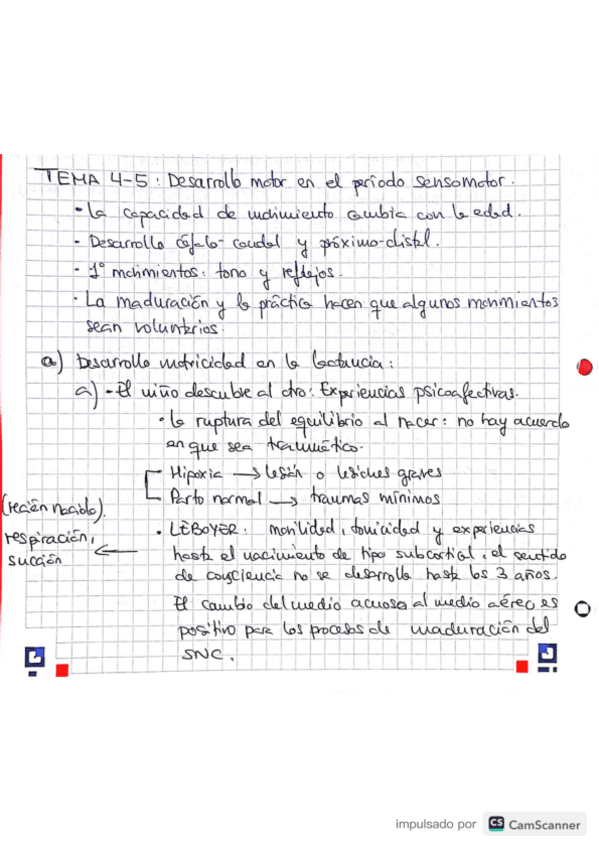 TEMA 4-5: Desarrollo motor en el período sensomotor.
· La capacidad de movimiento cambia con la edad.
- Desarrollo céfalo-caudal y próximo-distal.
· 1º movimientos: tono y reflejos.
· La maduración y la práctica hacen que algunos movimientos
sean voluntarios.
a) Desarrollo motricidad en la lactancia:
a) - El niño descubre al otro: Experiencias psicoafectivas.
· la ruptura del equilibrio al nacer: no hay acuerdo
en que sea traumático.
Hipoxia → lesión o lesiones graves
Parto normal → traumas mínimos
(recién nacido).
respiración,
succión ←
· LEBOYER: movilidad, tonicidad y experiencias
hasta el nacimiento de tipo subcortical, el sentido
de consciencia no se desarrolla hasta los 3 años.
El cambio del medio acuoso al medio aéreo es
positivo para los procesos de maduración del
SNC.
impulsado por CS CamScanner